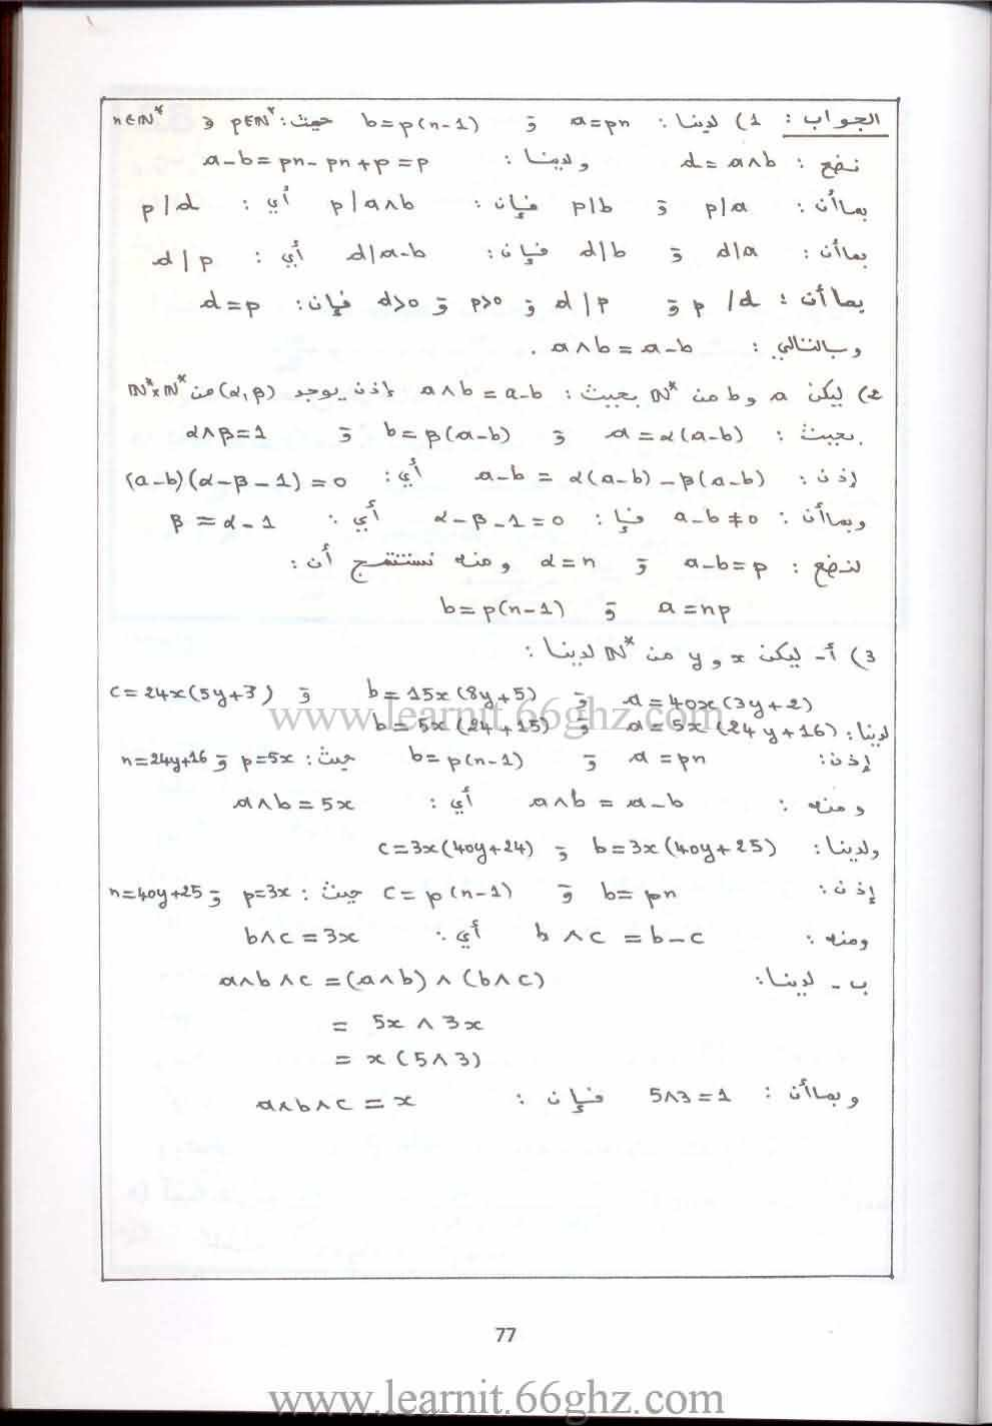 الجواب : 1) لدينا : a=pn و b=p(n-1) حيث : p∈ℕ* و n∈ℕ*
نضع : d=a∧b ولدينا : a-b=pn-pn+p=p
بما أن : p|a و p|b فإن : p|a∧b أي : p|d
بما أن : d|a و d|b فإن : d|a-b أي : d|p
بما أن : p|d و d|p و p>0 و d>0 فإن : d=p
وبالتالي : a∧b=a-b .
2) ليكن a و b من ℕ* بحيث : a∧b=a-b إذن يوجد (α,β) من ℕ*×ℕ*
بحيث : a=α(a-b) و b=β(a-b) و α∧β=1
إذن : a-b=α(a-b)-β(a-b) أي : (a-b)(α-β-1)=0
وبما أن : a-b≠0 فإ : α-β-1=0 أي : β=α-1
لنضع : a-b=p و α=n ومنه نستنتج أن :
a=np و b=p(n-1)
3) أ- ليكن x و y من ℕ* لدينا :
a=40x(3y+2) و b=15x(8y+5) و c=24x(5y+3)
لدينا : a=5x(24y+16) و b=5x(24+15)
إذن : a=pn و b=p(n-1) حيث : p=5x و n=24y+16
ومنه : a∧b=a-b أي : a∧b=5x
ولدينا : b=3x(40y+25) و c=3x(40y+24)
إذن : b=pn و c=p(n-1) حيث : p=3x و n=40y+25
ومنه : b∧c=b-c أي : b∧c=3x
ب- لدينا : a∧b∧c=(a∧b)∧(b∧c)
= 5x∧3x
= x(5∧3)
وبما أن : 5∧3=1 فإن : a∧b∧c=x
www.learnit.66ghz.com
77
www.learnit.66ghz.com